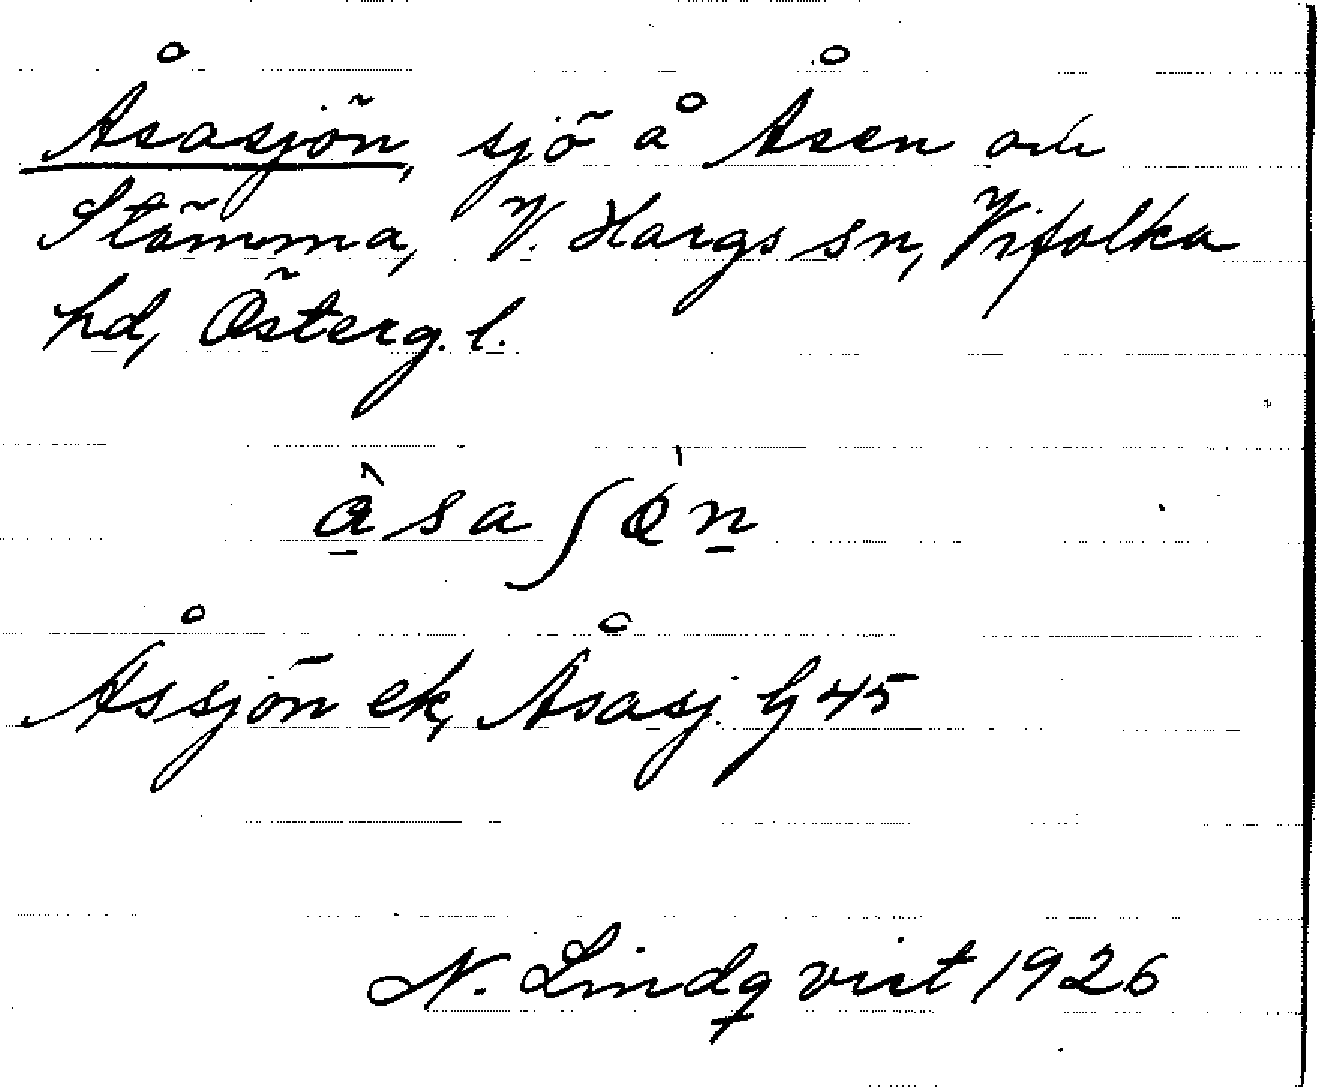 Åsasjön, sjö å Åsen och
Stämma, V. Hargs sn, Vifolka
hd, Österg. l.
åsaʃön
Åssjön ek, Åsasj. G 45
N. Lindqvist 1926